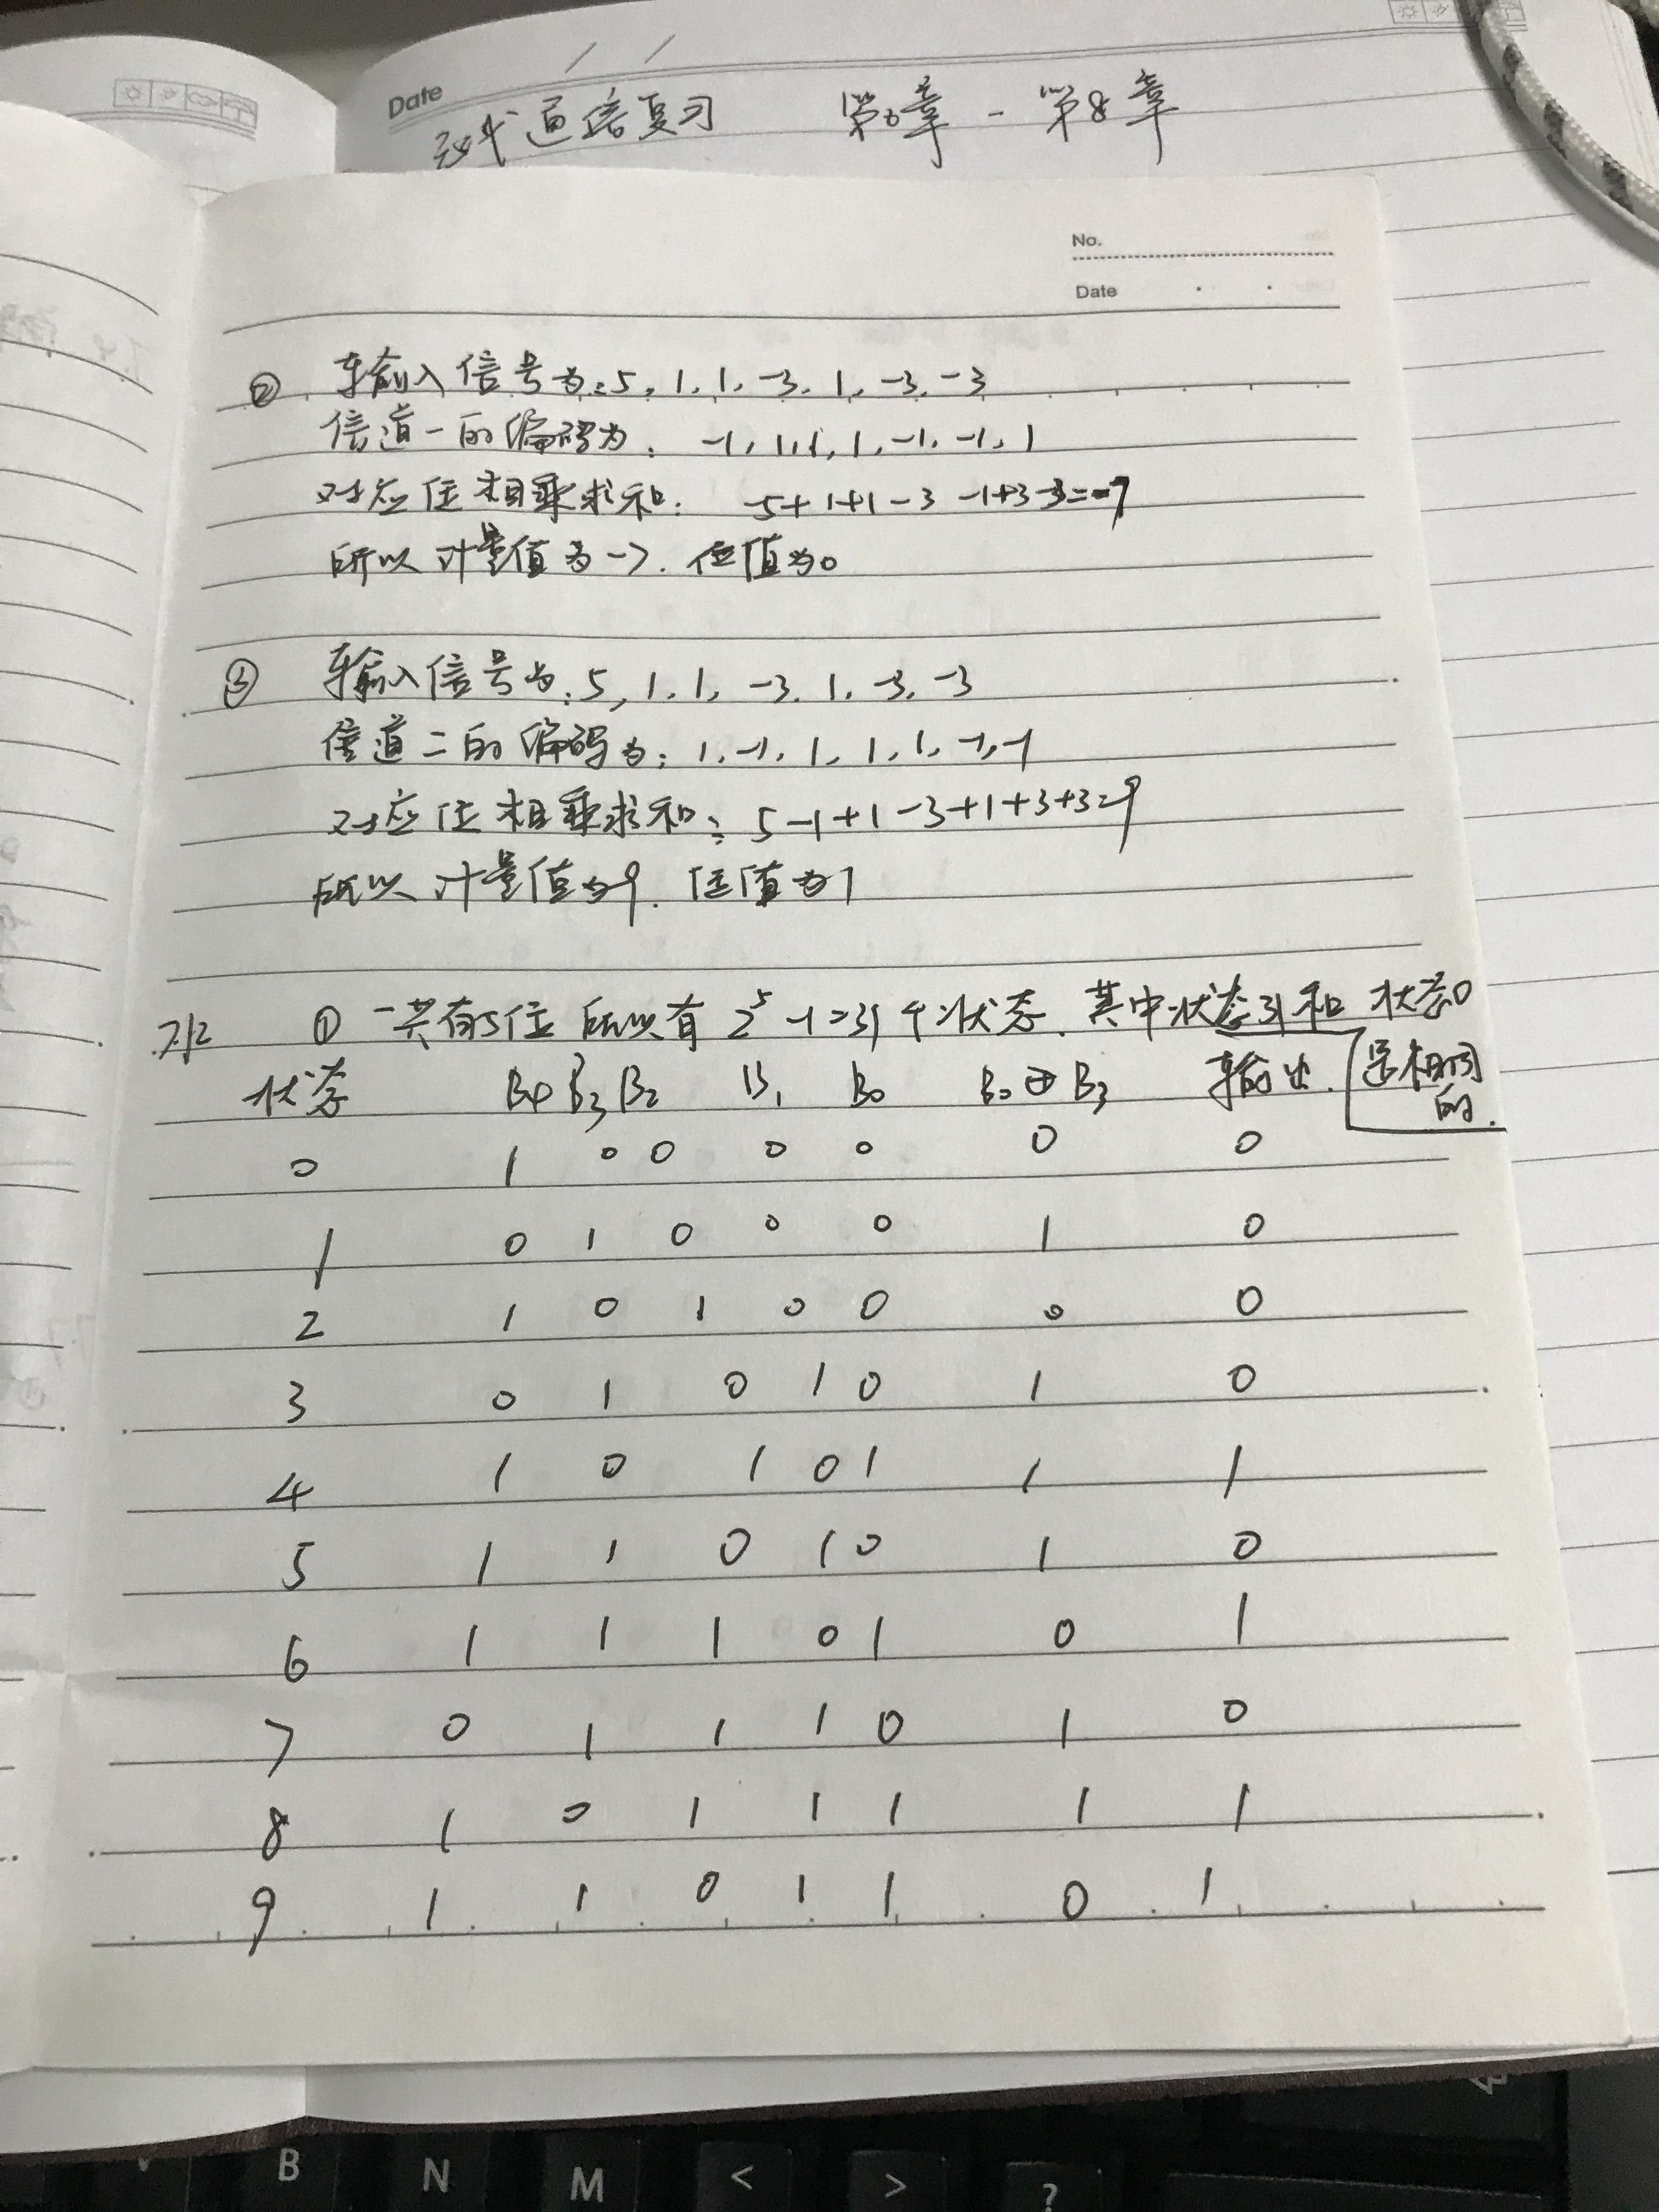 Date
现代通信复习 第6章 - 第8章
No.
Date
② 输入信号为:5, 1, 1, -3, 1, -3, -3
信道一的编码为: -1, 1, 1, 1, -1, -1, 1
对应位相乘求和: -5+1+1-3-1+3-3=-7
所以计量值为-7. 位值为0
③ 输入信号为:5, 1, 1, -3, 1, -3, -3
信道二的编码为: 1, -1, 1, 1, 1, -1, -1
对应位相乘求和: 5-1+1-3+1+3+3=9
所以计量值为9. 位值为1
7.12 ① 一共有5位 所以有 2^5-1=31个状态. 其中状态31和状态0
是相同的.
状态 B4 B3 B2 B1 B0 B0⊕B3 输出
0 1 0 0 0 0 0 0
1 0 1 0 0 0 1 0
2 1 0 1 0 0 0 0
3 0 1 0 1 0 1 0
4 1 0 1 0 1 1 1
5 1 1 0 1 0 1 0
6 1 1 1 0 1 0 1
7 0 1 1 1 0 1 0
8 1 0 1 1 1 1 1
9 1 1 0 1 1 0 1
B N M < > ?